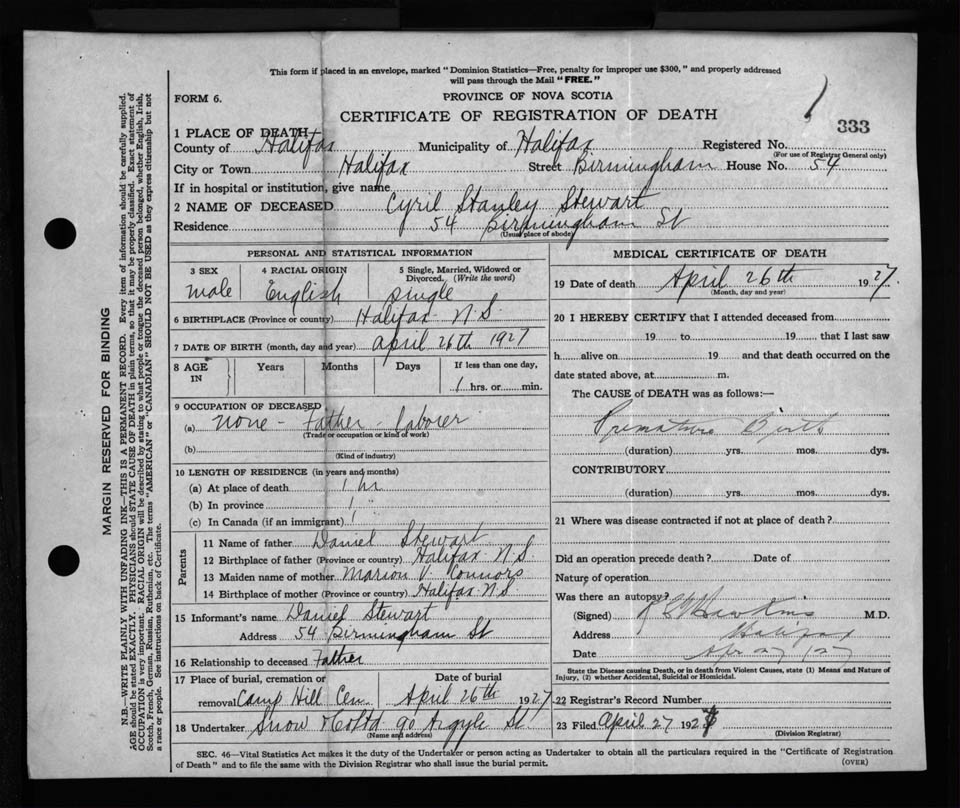 This form if placed in an envelope, marked "Dominion Statistics—Free, penalty for improper use $300," and properly addressed
will pass through the Mail "FREE."
FORM 6.
PROVINCE OF NOVA SCOTIA
CERTIFICATE OF REGISTRATION OF DEATH
333
1 PLACE OF DEATH
County of Halifax Municipality of Halifax Registered No.
(For use of Registrar General only)
City or Town Halifax Street Birmingham House No. 54
If in hospital or institution, give name
2 NAME OF DECEASED Cyril Stanley Stewart
Residence 54 Birmingham St
(Usual place of abode)
PERSONAL AND STATISTICAL INFORMATION
3 SEX 4 RACIAL ORIGIN 5 Single, Married, Widowed or
Divorced. (Write the word)
male English single
6 BIRTHPLACE (Province or country) Halifax N.S.
7 DATE OF BIRTH (month, day and year) April 26th 1927
8 AGE Years Months Days If less than one day,
IN 1 hrs. or min.
9 OCCUPATION OF DECEASED
(a) none - Father - laborer
(Trade or occupation or kind of work)
(b)
(Kind of industry)
10 LENGTH OF RESIDENCE (in years and months)
(a) At place of death 1 hr
(b) In province "
(c) In Canada (if an immigrant) "
Parents
11 Name of father Daniel Stewart
12 Birthplace of father (Province or country) Halifax N.S.
13 Maiden name of mother Marion V. Connors
14 Birthplace of mother (Province or country) Halifax N.S.
15 Informant's name Daniel Stewart
Address 54 Birmingham St
16 Relationship to deceased Father
17 Place of burial, cremation or Date of burial
removal Camp Hill Cem. April 26th 1927
18 Undertaker Snow & Co Ltd 90 Argyle St
(Name and address)
MEDICAL CERTIFICATE OF DEATH
19 Date of death April 26th 1927.
(Month, day and year)
20 I HEREBY CERTIFY that I attended deceased from
19 to 19 that I last saw
h alive on 19 and that death occurred on the
date stated above, at m.
The CAUSE of DEATH was as follows:—
Premature Birth
(duration) yrs. mos. dys.
CONTRIBUTORY
(duration) yrs. mos. dys.
21 Where was disease contracted if not at place of death?
Did an operation precede death? Date of
Nature of operation
Was there an autopsy?
(Signed) Hawkins M.D.
Address Halifax
Date Apr 27/27
State the Disease causing Death, or in death from Violent Causes, state (1) Means and Nature of
Injury, (2) whether Accidental, Suicidal or Homicidal.
22 Registrar's Record Number
23 Filed April 27 192
(Division Registrar)
SEC. 46—Vital Statistics Act makes it the duty of the Undertaker or person acting as Undertaker to obtain all the particulars required in the "Certificate of Registration
of Death" and to file the same with the Division Registrar who shall issue the burial permit. (OVER)
MARGIN RESERVED FOR BINDING
N.B.—WRITE PLAINLY WITH UNFADING INK—THIS IS A PERMANENT RECORD. Every item of information should be carefully supplied.
AGE should be stated EXACTLY. PHYSICIANS should STATE CAUSE OF DEATH in plain terms, so that it may be properly classified. Exact statement of
OCCUPATION is very important. RACIAL ORIGIN will be described by stating to what people or tongue the deceased person belonged, whether English, Irish,
Scotch, French, German, Russian, Ruthenian, etc. The terms "AMERICAN" or "CANADIAN" SHOULD NOT BE USED as they express citizenship but not
a race or people. See instructions on back of Certificate.